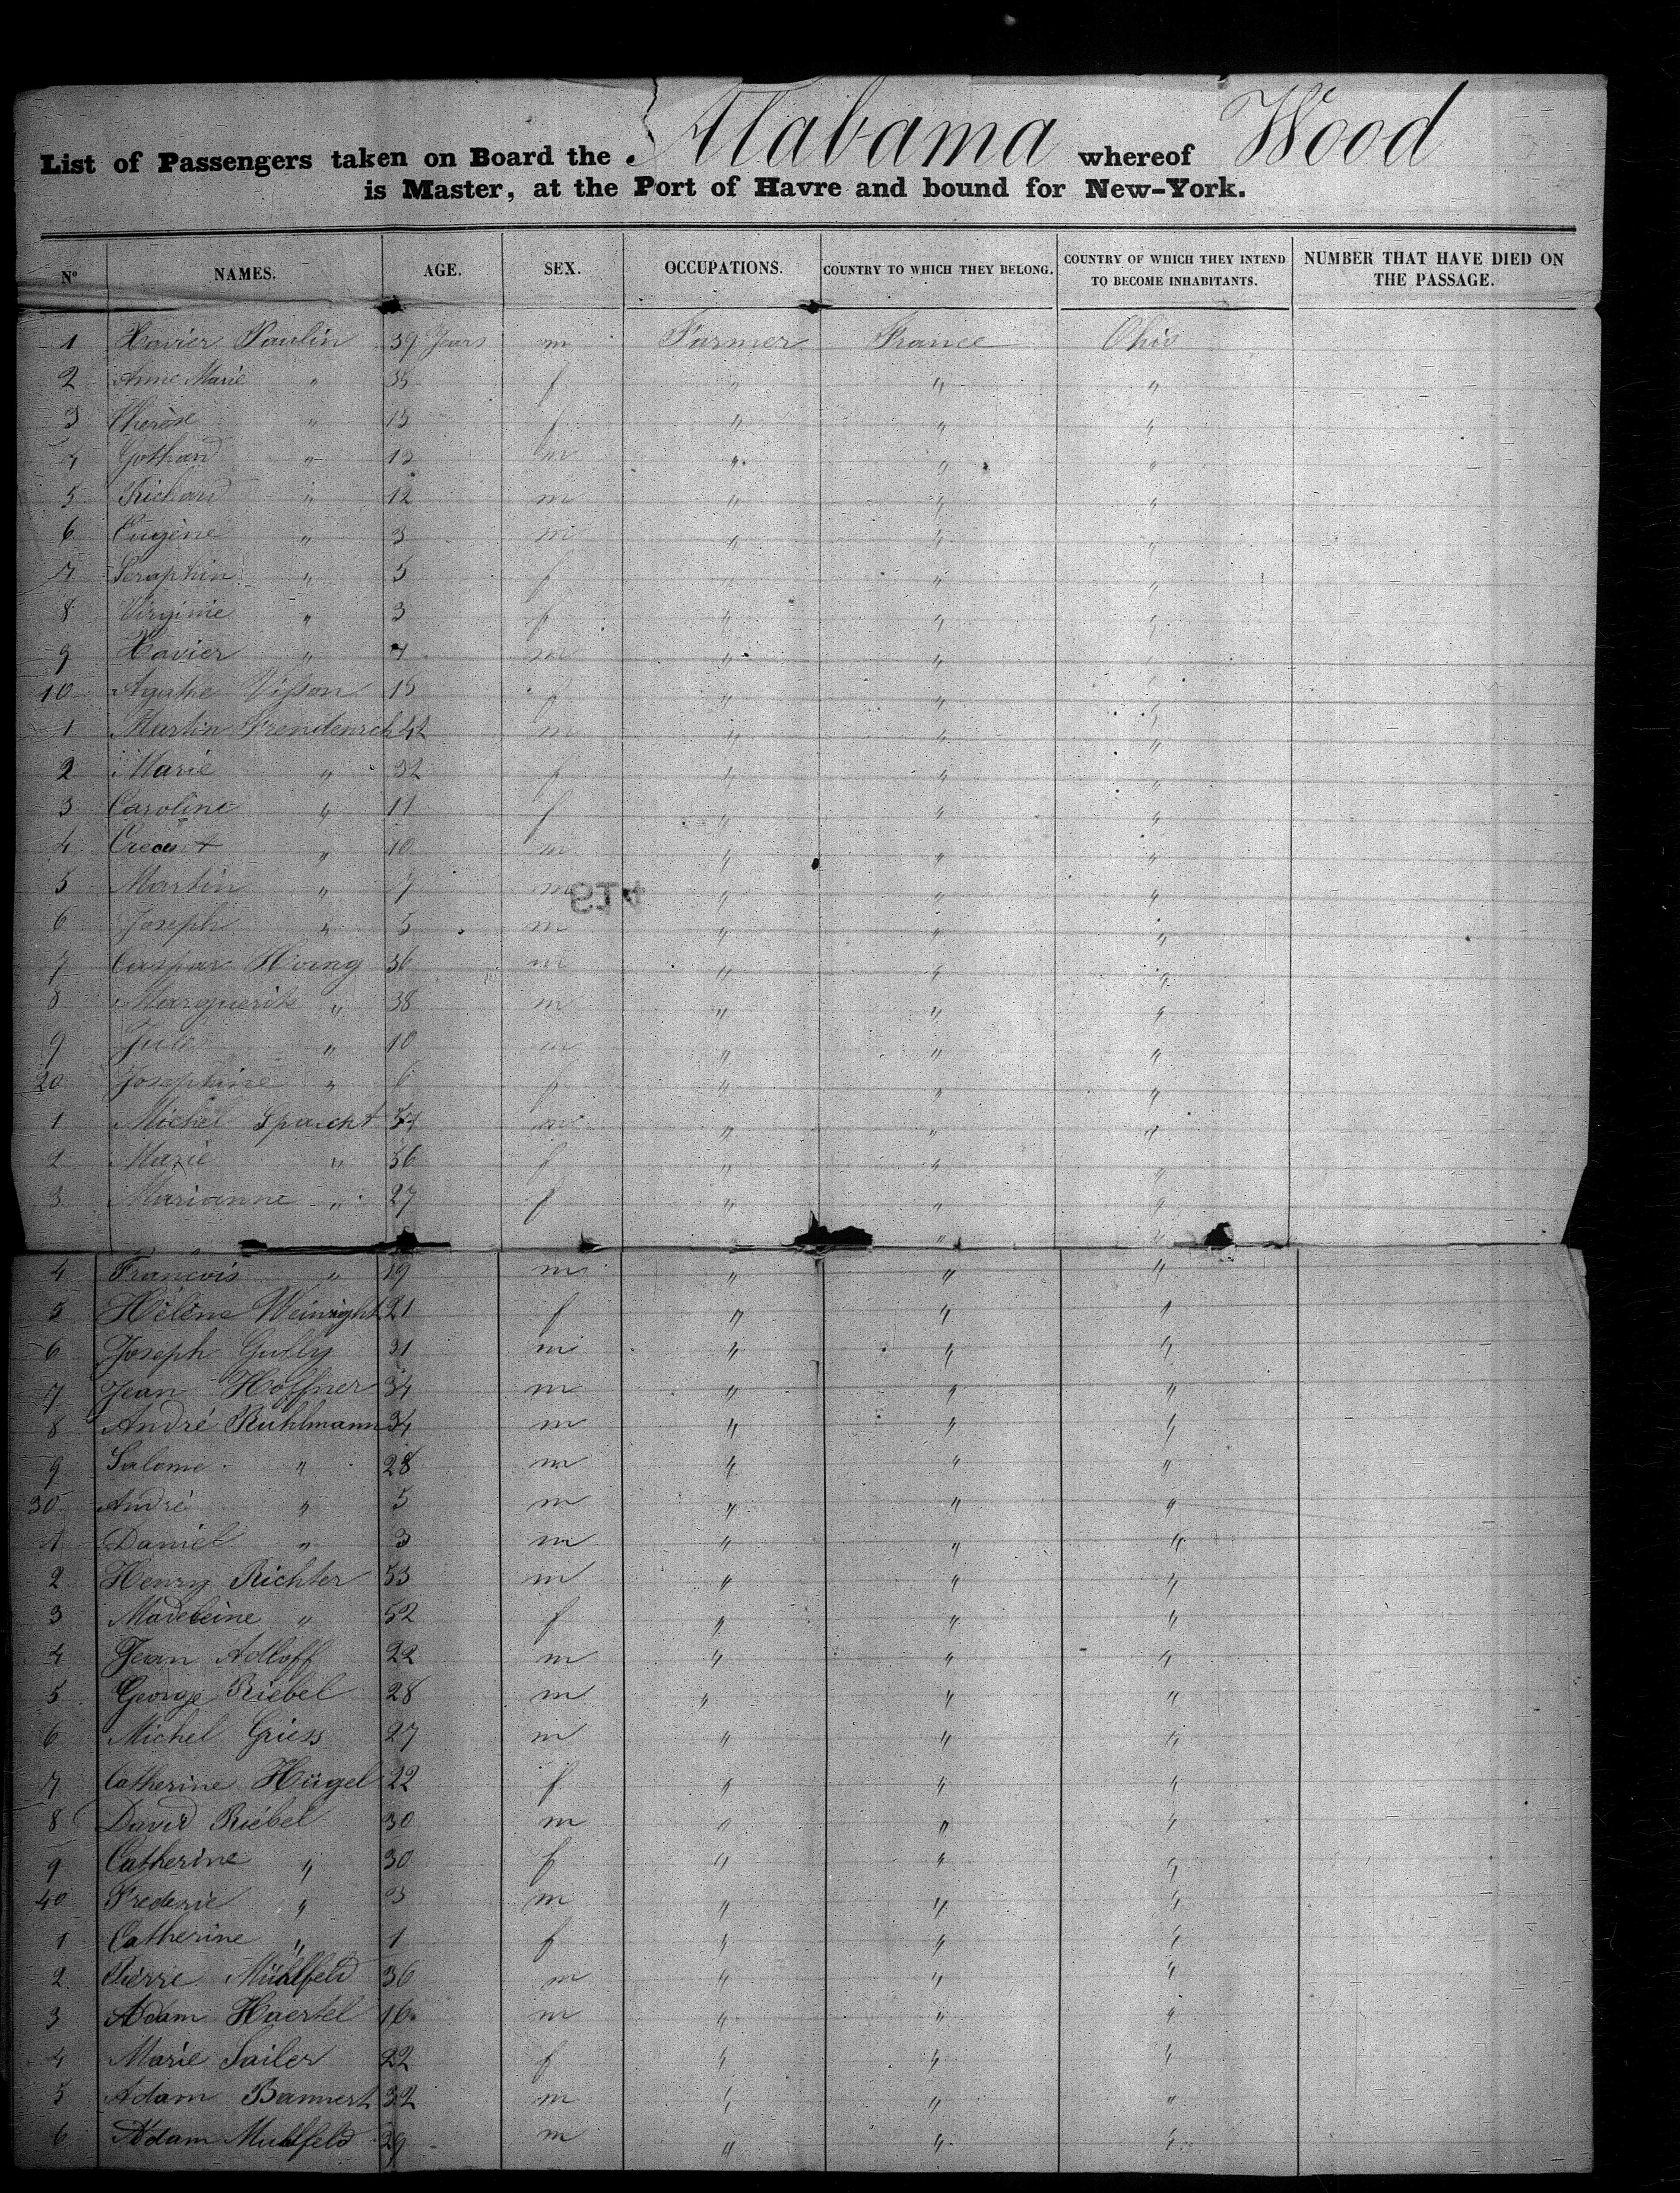 List of Passengers taken on Board the Alabama whereof Wood
is Master, at the Port of Havre and bound for New-York.
Nº NAMES. AGE. SEX. OCCUPATIONS. COUNTRY TO WHICH THEY BELONG. COUNTRY OF WHICH THEY INTEND TO BECOME INHABITANTS. NUMBER THAT HAVE DIED ON THE PASSAGE.
1 Xavier Paulin 39 Years m Farmer France Ohio
2 Anne Marie " 35 f " " "
3 Therèse " 15 f " " "
4 Gothard " 13 m " " "
5 Richard " 12 m " " "
6 Eugène " 3 m " " "
7 Seraphin " 5 f " " "
8 Virginie " 3 f " " "
9 Xavier " m " " "
10 Agathe 15 f " " "
1 Martin 42 m " " "
2 Marie " 32 f " " "
3 Caroline " 11 f " " "
4 " 10 m " " "
5 Martin " 7 m " " "
6 Joseph " 5 m " " "
7 Caspar 36 m " " "
8 Marguerite " 38 m " " "
9 Jules " 10 m " " "
20 Josephine " 6 f " " "
1 Michel Spaecht 57 m " " "
2 Marie " 56 f " " "
3 Marianne " 27 f " " "
4 Francois " 19 m " " "
5 Hélène Weinright 21 f " " "
6 Joseph Gully 31 m " " "
7 Jean Hoffner 34 m " " "
8 André Ruhlmann 34 m " " "
9 Salome " 28 m " " "
30 André " 5 m " " "
1 Daniel " 3 m " " "
2 Henry Richter 53 m " " "
3 Madeleine " 52 f " " "
4 Jean Adloff 22 m " " "
5 George Riebel 28 m " " "
6 Michel Griess 27 m " " "
7 Catherine Hügel 22 f " " "
8 David Riebel 30 m " " "
9 Catherine " 30 f " " "
40 Frederic " 3 m " " "
1 Catherine " 1 f " " "
2 Pierre Mühlfeld 36 m " " "
3 Adam Haertel 16 m " " "
4 Marie Sailer 22 f " " "
5 Adam Bannert 32 m " " "
6 Adam Muhlfeld 29 m " " "